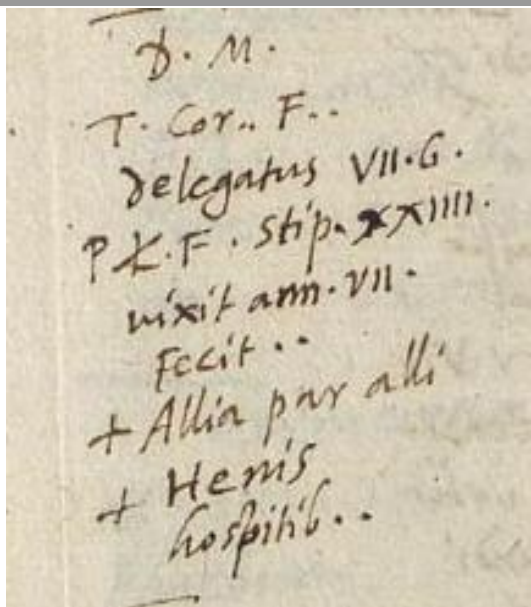 D. M.
T. Cor.. F..
delegatus VII. G.
P . F. Stip. XXIIII.
vixit ann. VII.
Fecit ..
+ Allia par alli
+ Henis
hospitib..